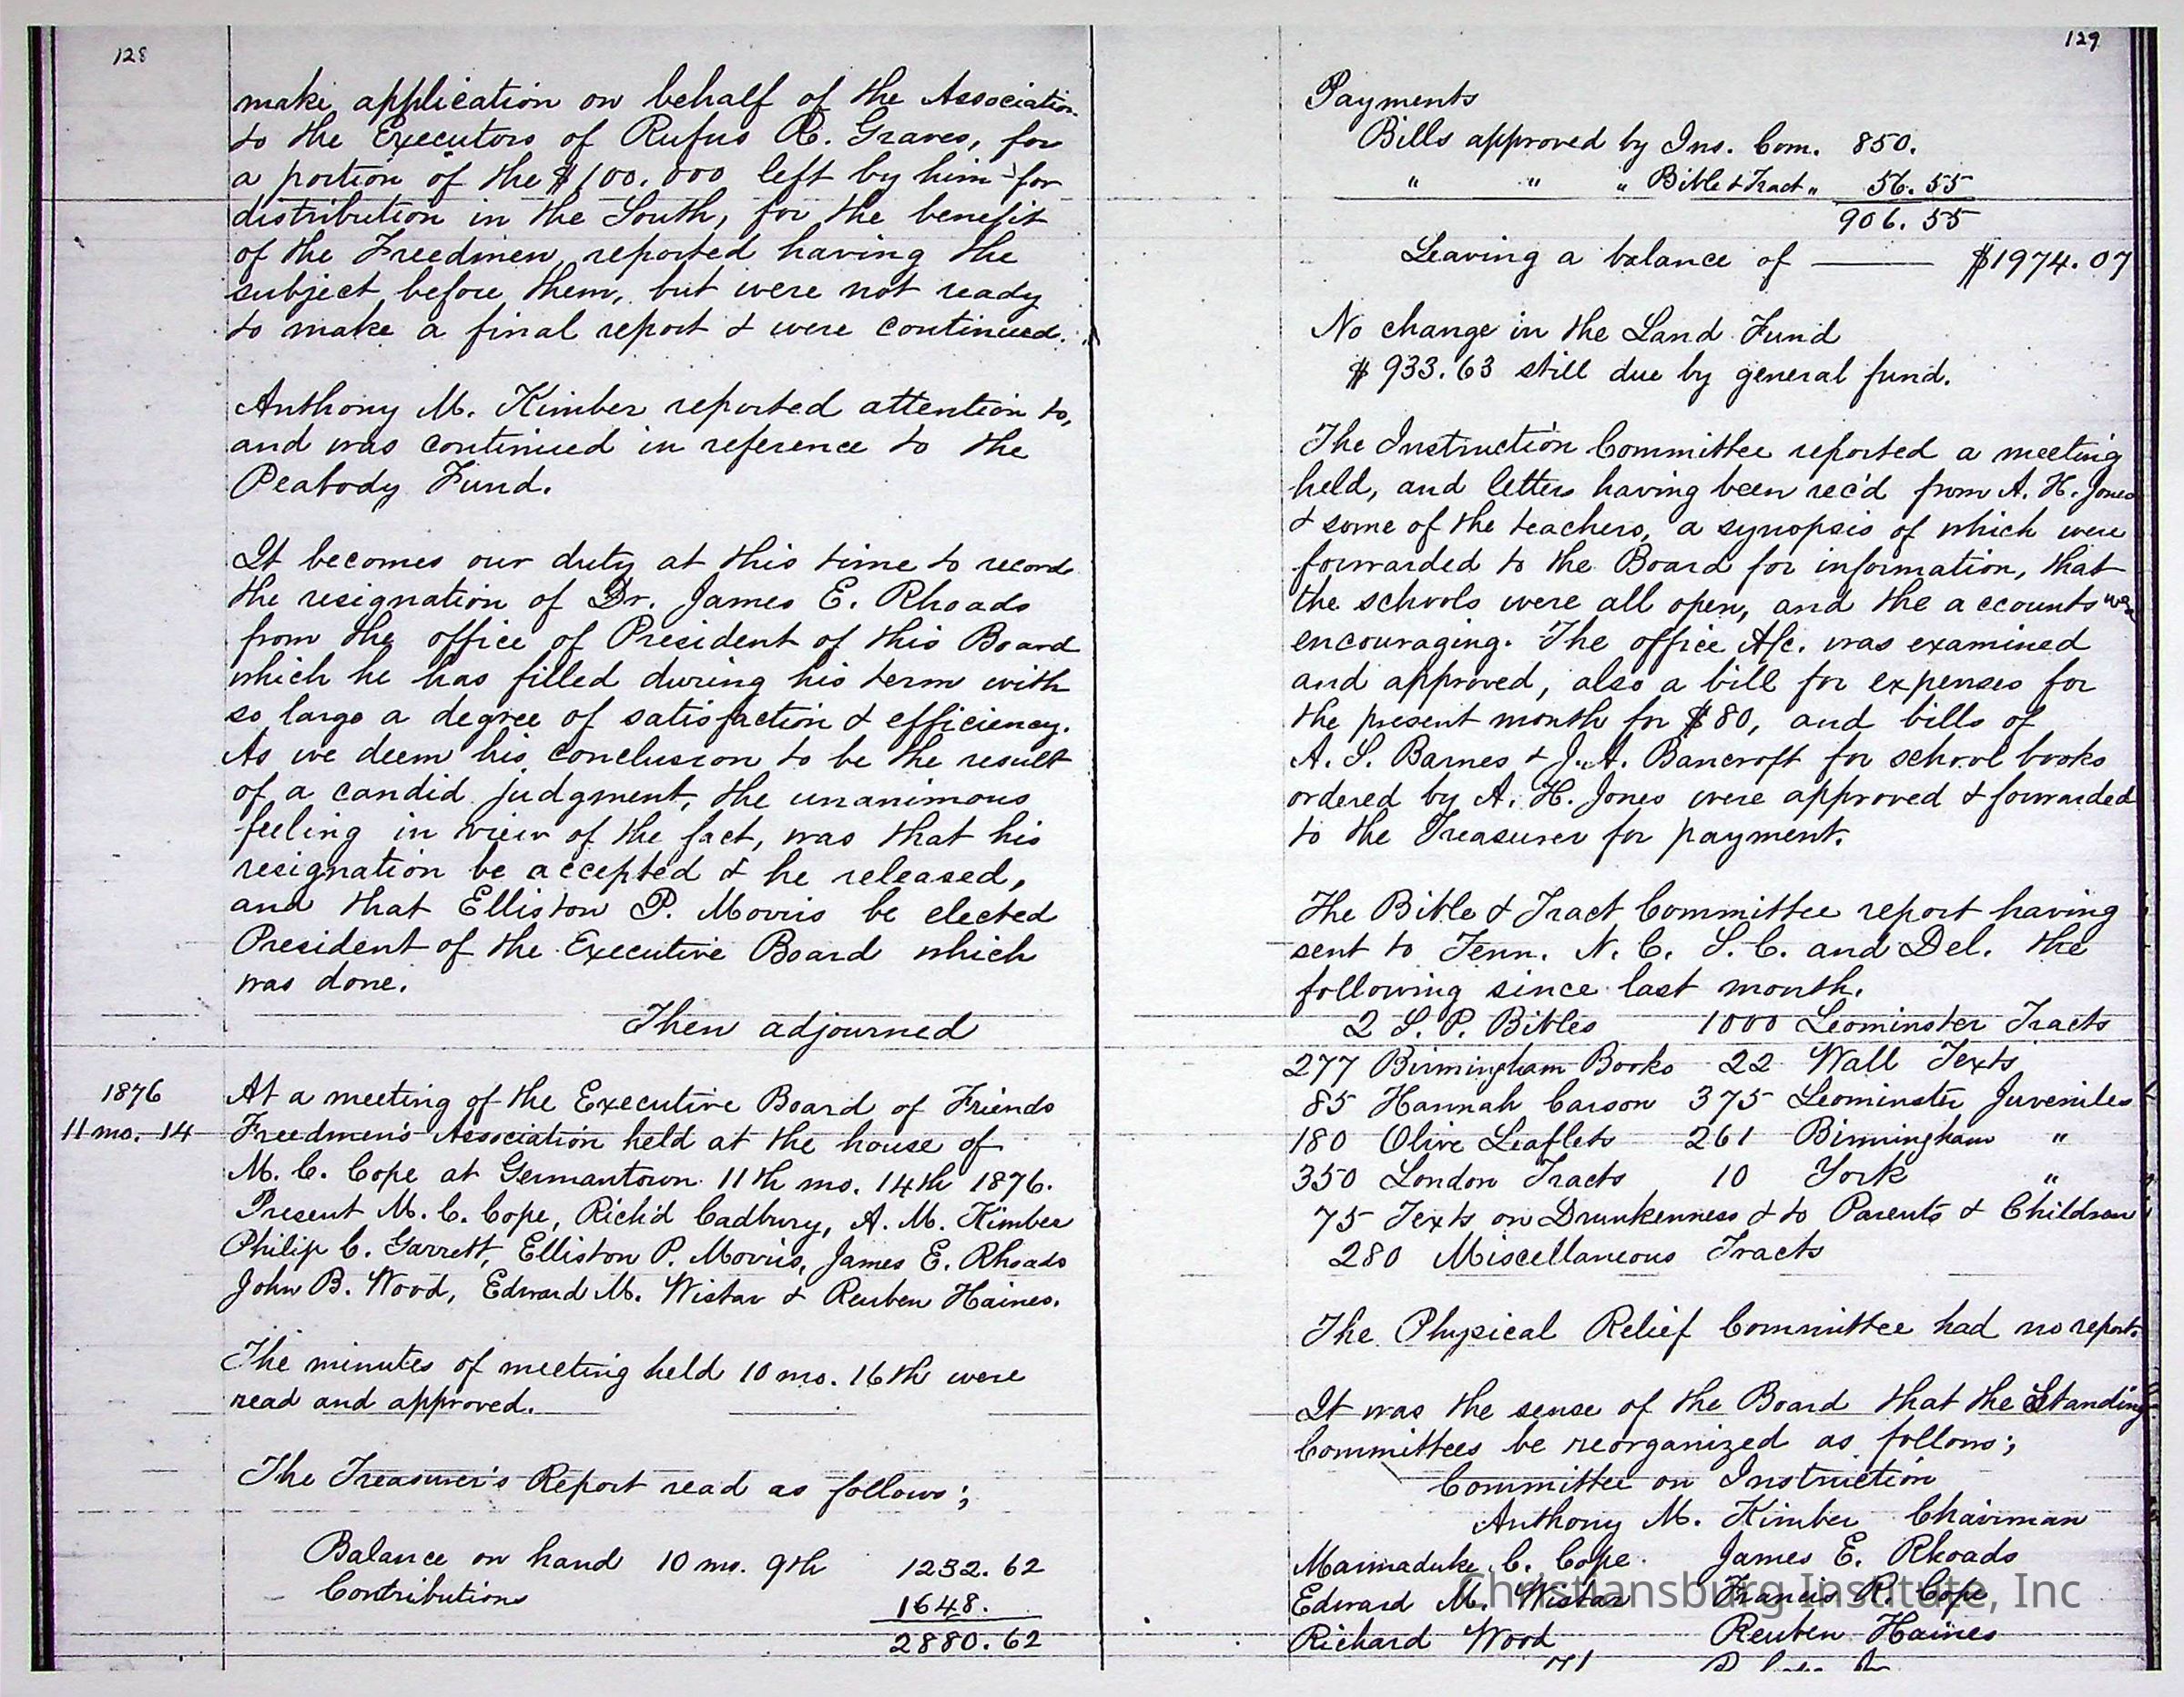 128
make application on behalf of the Association
to the Executors of Rufus R. Graves, for
a portion of the $100.000 left by him for
distribution in the South, for the benefit
of the Freedmen reported having the
subject before them, but were not ready
to make a final report & were continued.
Anthony M. Kimber reported attention to,
and was continued in reference to the
Peabody Fund.
It becomes our duty at this time to record
the resignation of Dr. James E. Rhoads
from the office of President of this Board
which he has filled during his term with
so large a degree of satisfaction & efficiency.
As we deem his conclusion to be the result
of a candid judgment, the unanimous
feeling in view of the fact, was that his
resignation be accepted & he released,
and that Elliston P. Morris be elected
President of the Executive Board which
was done.
Then adjourned
1876
11 mo. 14
At a meeting of the Executive Board of Friends
Freedmen's Association held at the house of
M. C. Cope at Germantown 11th mo. 14th 1876.
Present M. C. Cope, Rich'd Cadbury, A. M. Kimber
Philip C. Garrett, Elliston P. Morris, James E. Rhoads
John B. Wood, Edward M. Wistar & Reuben Haines.
The minutes of meeting held 10 mo. 16th were
read and approved.
The Treasurer's Report read as follows;
Balance on hand 10 mo. 9th 1232.62
Contributions 1648.
2880.62
129
Payments
Bills approved by Ins. Com. 850.
" " " Bible & Tract " 56.55
906.55
Leaving a balance of $1974.07
No change in the Land Fund
$933.63 still due by general fund.
The Instruction Committee reported a meeting
held, and letters having been rec'd from A. H. Jones
& some of the teachers, a synopsis of which were
forwarded to the Board for information, that
the schools were all open, and the accounts were
encouraging. The office A/c. was examined
and approved, also a bill for expenses for
the present month for $80, and bills of
A. S. Barnes & J. A. Bancroft for school books
ordered by A. H. Jones were approved & forwarded
to the Treasurer for payment.
The Bible & Tract Committee report having
sent to Tenn. N. C. S. C. and Del. the
following since last month.
2 S. P. Bibles 1000 Leominster Tracts
277 Birmingham Books 22 Wall Texts
85 Hannah Carson 375 Leominster Juveniles
180 Olive Leaflets 261 Birmingham "
350 London Tracts 10 York "
75 Texts on Drunkenness & to Parents & Children
280 Miscellaneous Tracts
The Physical Relief Committee had no report.
It was the sense of the Board that the Standing
Committees be reorganized as follows;
Committee on Instruction
Anthony M. Kimber Chairman
Marmaduke C. Cope. James E. Rhoads
Edward M. Wistar Francis R. Cope
Richard Wood Reuben Haines
Christiansburg Institute, Inc